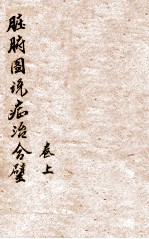 脏腑图说症治合璧
卷上